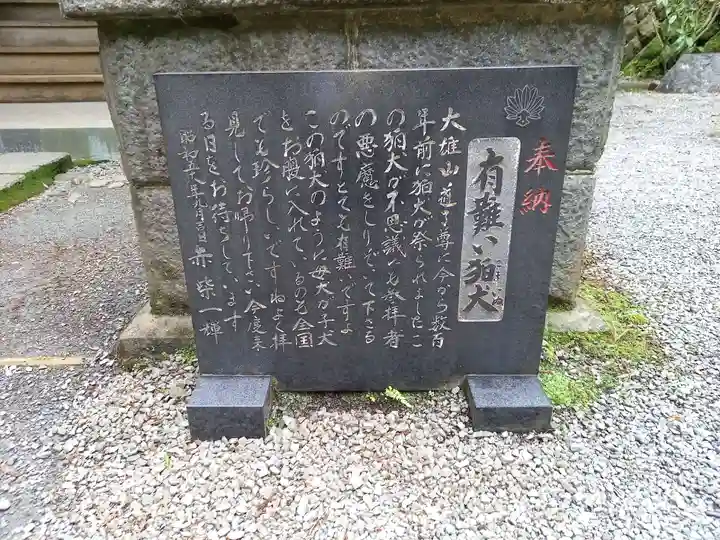 奉納
有難い狛犬
大雄山道了尊に今から数百
年前に狛犬が祭られましたこ
の狛犬が不思議にも参拝者
の悪魔をしりぞいて下さる
のですとても有難いですよ
この狛犬のように母犬が子犬
をお腹に入れているのも全国
でも珍らしいですねよく拝
見してお帰り下さい今度来
る日をお待ちしています
昭和 年九月 日 柴一輝